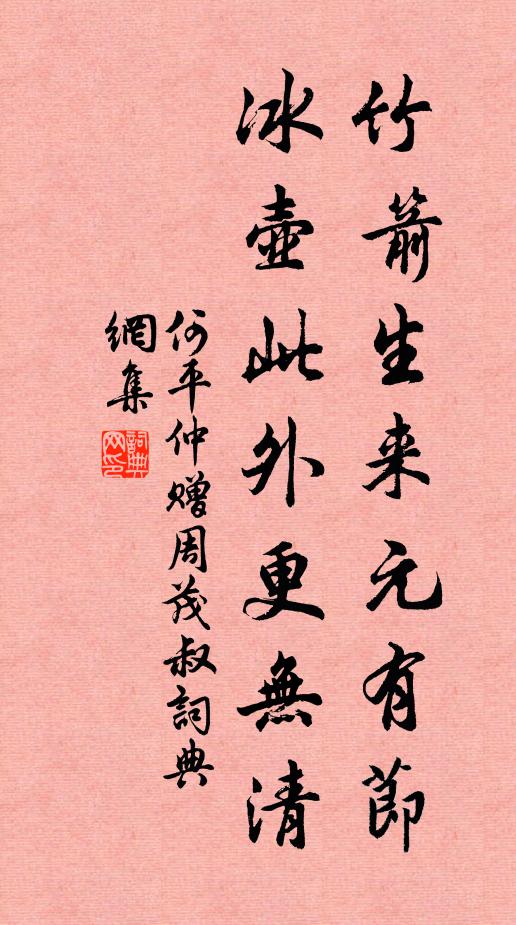 竹箭生来元有節
冰壺此外更無清
何平仲贈周茂叔詞典
網集
詞典網印